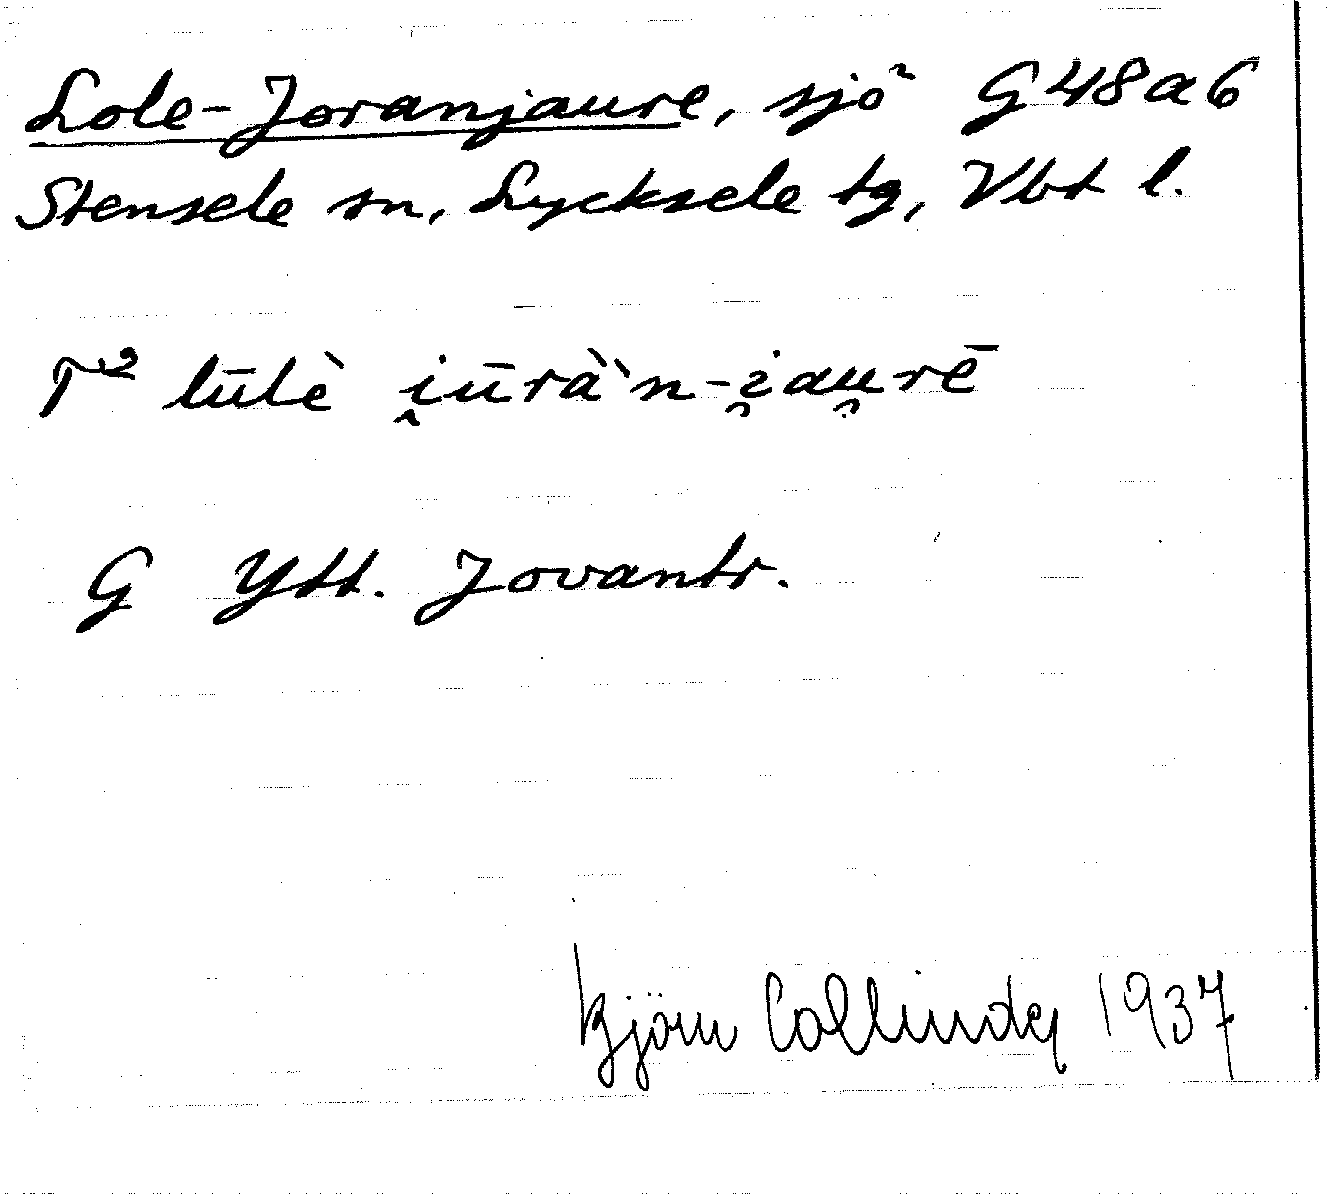 Lole-Joranjaure, sjö G48a6
Stensele sn, Lycksele tg, Vbt l.
T² lūlè i̯ūràˋn-i̯au̯rē
G Ytt. Jovantr.
Björn Collinder 1937